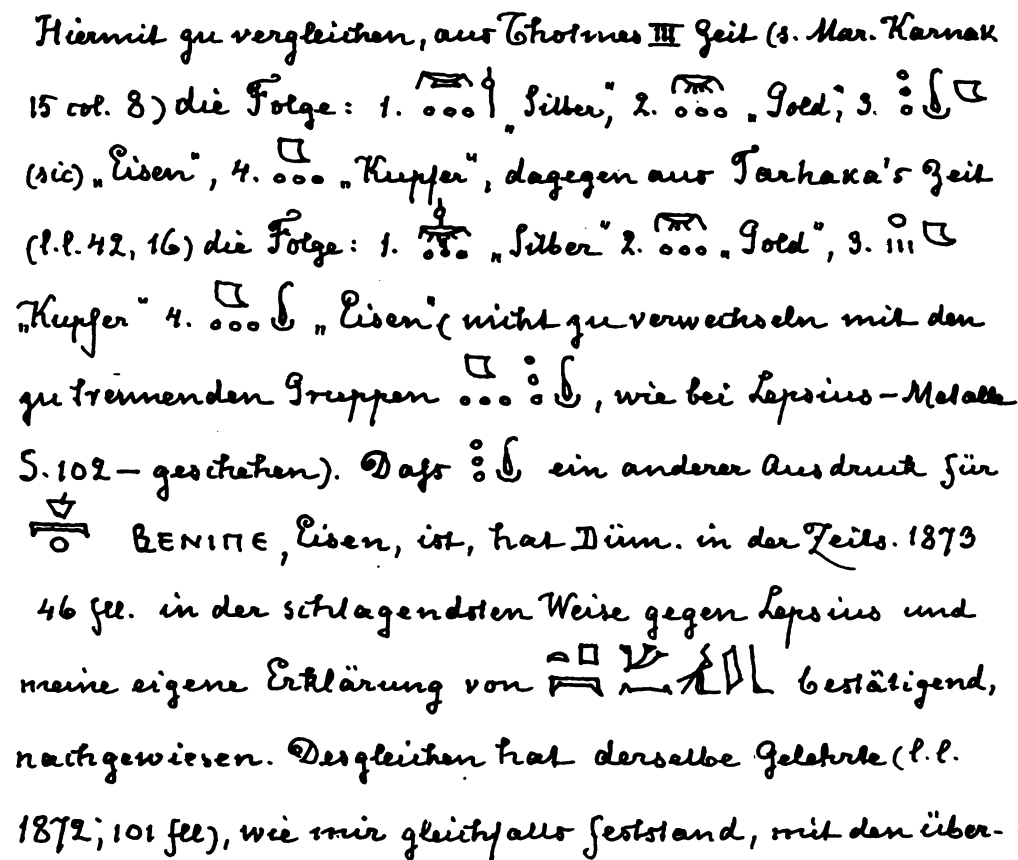 Hiermit zu vergleichen, aus Thotmes III Zeit (s. Mar. Karnak
15 col. 8) die Folge: 1. „Silber“, 2. „Gold“, 3.
(sic) „Eisen“, 4. „Kupfer“, dagegen aus Tarhaka's Zeit
(l.l. 42, 16) die Folge: 1. „Silber“ 2. „Gold“, 3.
„Kupfer“ 4. „Eisen“ (nicht zu verwechseln mit den
zu trennenden Gruppen , wie bei Lepsius – Metalle
S. 102 – geschehen). Daſs ein anderer Ausdruck für
ⲂⲈⲚⲒⲠⲈ, Eisen, ist, hat Düm. in der Zeits. 1873
46 fll. in der schlagendsten Weise gegen Lepsius und
meine eigene Erklärung von bestätigend,
nachgewiesen. Desgleichen hat derselbe Gelehrte (l.l.
1872, 101 fll), wie mir gleichfalls feststand, mit den über-